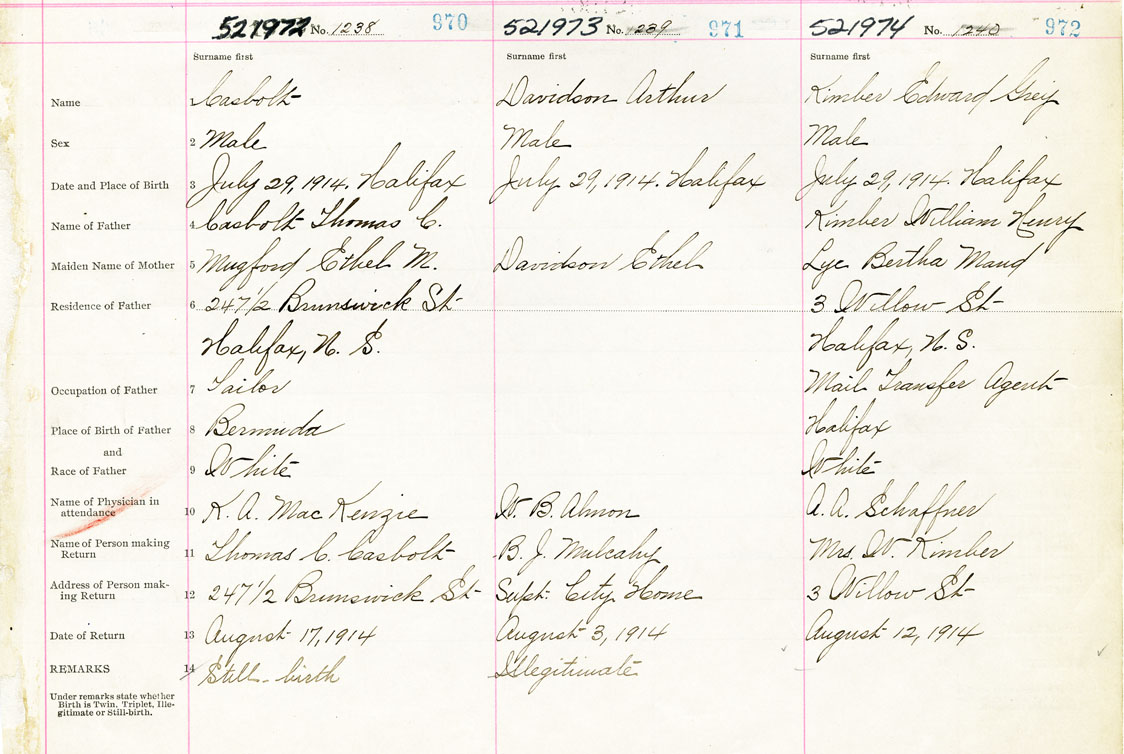 521972 No. 1238 970 521973 No. 239 971 521974 No. 1240 972
Surname first Surname first Surname first
Name Casbolt Davidson Arthur Kimber Edward Grey
Sex 2 Male Male Male
Date and Place of Birth 3 July 29, 1914. Halifax July 29, 1914. Halifax July 29, 1914. Halifax
Name of Father 4 Casbolt Thomas C. Kimber William Henry
Maiden Name of Mother 5 Mugford Ethel M. Davidson Ethel Lye Bertha Maud
Residence of Father 6 247 1/2 Brunswick St 3 Willow St
Halifax, N. S. Halifax, N. S.
Occupation of Father 7 Tailor Mail Transfer Agent
Place of Birth of Father 8 Bermuda Halifax
and
Race of Father 9 White White
Name of Physician in
attendance 10 K. A. MacKenzie W. B. Almon A. A. Schaffner
Name of Person making
Return 11 Thomas C. Casbolt B. J. Mulcahy Mrs. W. Kimber
Address of Person mak-
ing Return 12 247 1/2 Brunswick St Supt. City Home 3 Willow St
Date of Return 13 August 17, 1914 August 3, 1914 August 12, 1914
REMARKS 14 Still-birth Illegitimate
Under remarks state whether
Birth is Twin, Triplet, Ille-
gitimate or Still-birth.